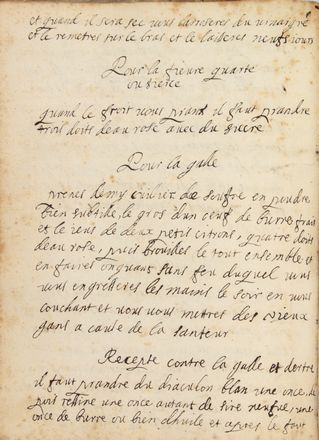 et quand il sera sec vous l'aroserez du vinaigre
et le remetres sur le bras et le laisseres neuf iours
Pour la fievre quarte
ou tierce
quand le froit vous prand il faut prandre
trois doits deau rose avec du sucre
Pour la galle
prenes demy cuilier de soufre en poudre
bien subtille le gros dun oeuf de burre frais
et le ius de deux petis citrons, quatre doits
deau rose, puis brouilles le tout ensemble et
en faires onguant sans feu duquel vous
vous engresseres les mains le soir en vous
couchant et vous vous metres des vieux
gans a cause de la santeur
Recepte contre la galle et dertre
il faut prandre du diaculon blan une once de
pois resine une once autant de sire neufve, une
once de burre ou bien dhuile et apres le faut